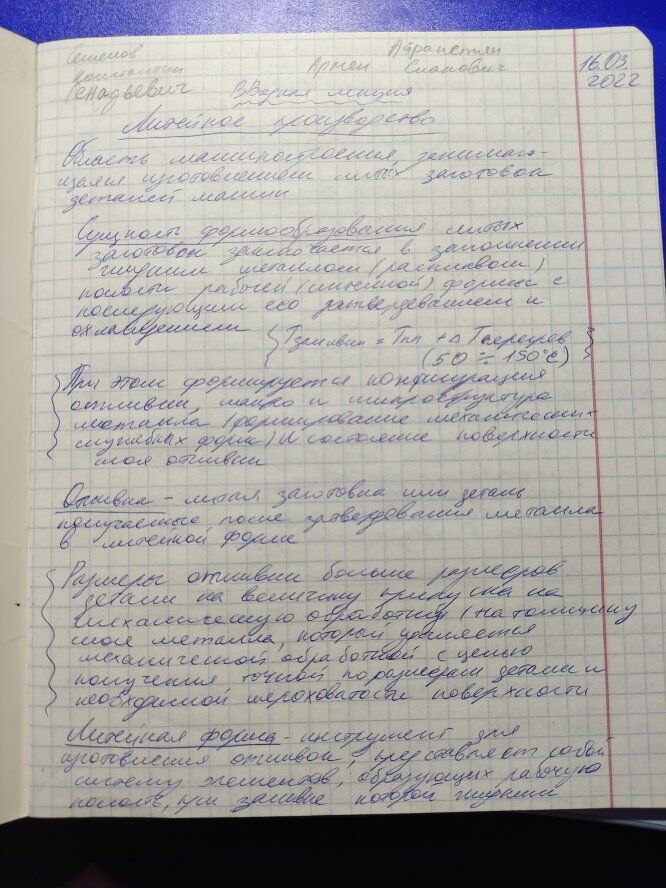 Семенов
Константин
Генадьевич
Айрапетян
Армен
16.03.
2022
ВВодная лекция
Литейное производство
Область машиностроения, занимаю-
щаяся изготовлением литых заготовок
деталей машин
Сущность формообразования литых
заготовок заключается в заполнении
жидким металлом (расплавом)
полости рабочей (литейной) формы с
последующим его затвердеванием и
охлаждением
{ Tзаливки = Tпл + Δ Tперегрев }
(50 ÷ 150°C)
При этом формируется конфигурация
отливки, макро и микроструктура
металла (формирование механическо-
служебных форм) и состояние поверхности
слоя отливки
Отливка - литая заготовка или деталь
получаемые, после затвердования металла
в литейной форме
Размеры отливки больше размеров
детали на величину припуска на
механическую обработку (на толщину
слоя металла, который удаляется
механической обработкой с целью
получения точной по размерам детали и
необходимой шероховатости поверхности
Литейная форма - инструмент для
изготовления отливок, представляет собой
систему элементов, образующих рабочую
полость, при заливке которой жидким